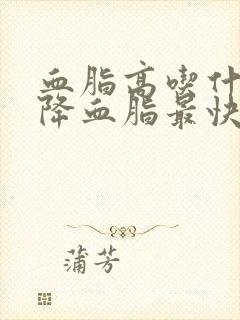 血脂高喫什
降血脂最快
蒲芳